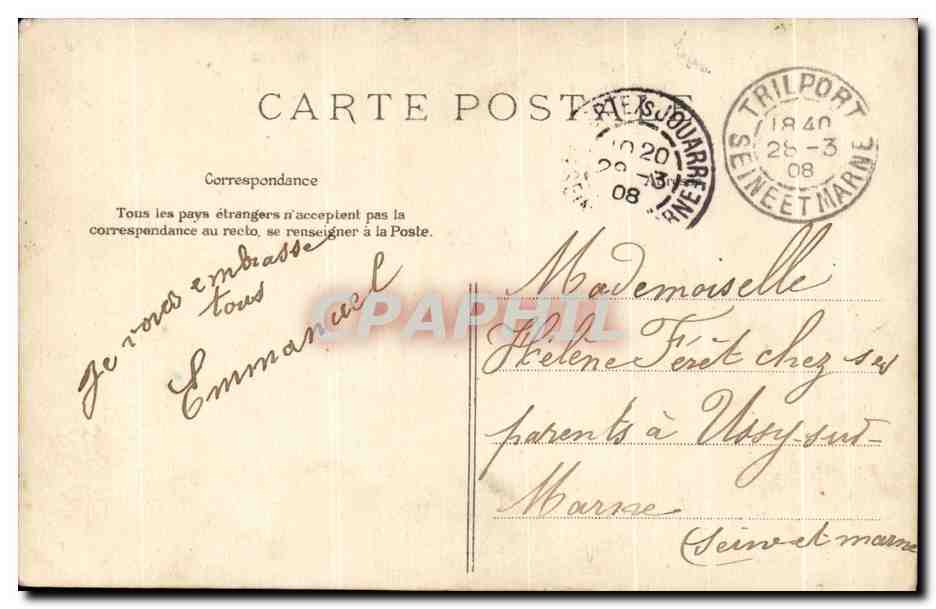 CARTE POSTALE
TRILPORT
18 40
28 -3
08
SEINE ET MARNE
JOUARRE
20
08
Correspondance
Tous les pays étrangers n'acceptent pas la
correspondance au recto, se renseigner à la Poste.
Je vous embrasse
tous
Emmanuel
CPAPHIL
Mademoiselle
Hélène Férêt chez ses
parents à Ussy-sur-
Marne
(Seine et marne